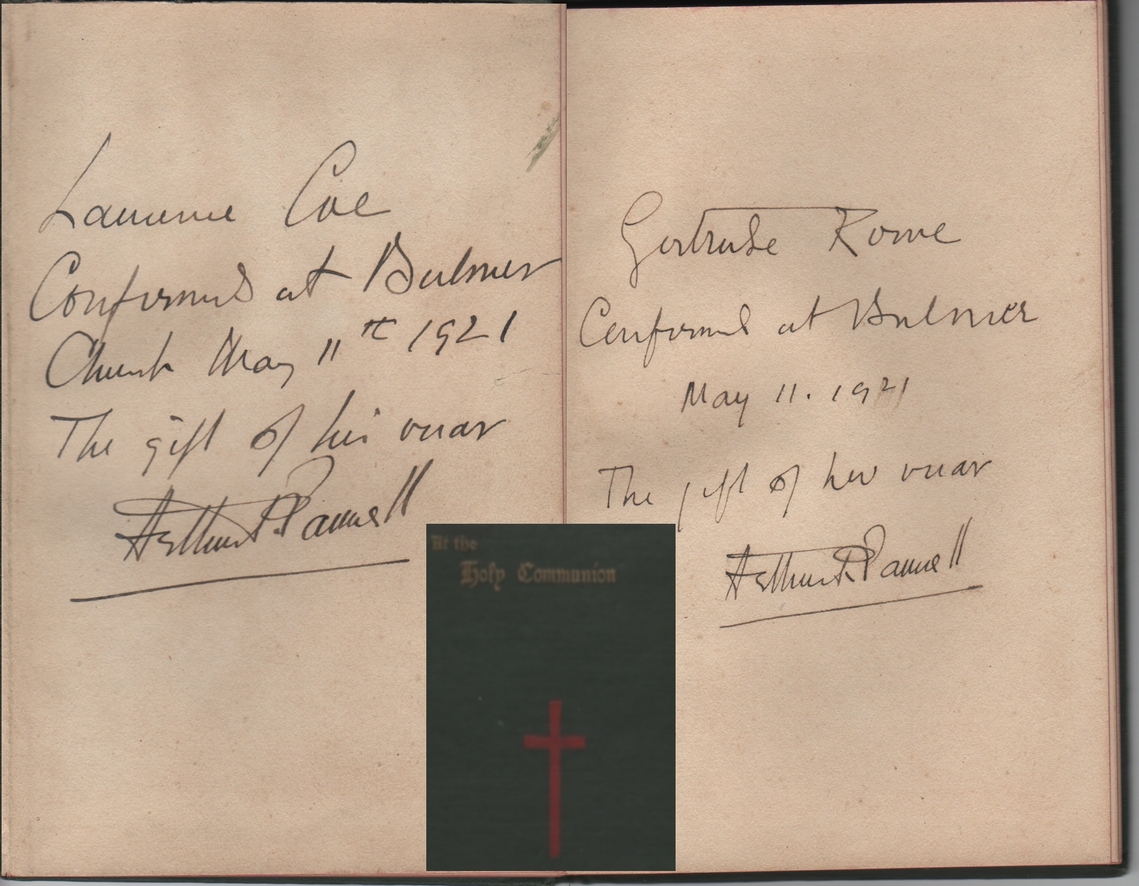 Laurence Coe
Confirmed at Bulmer
Church May 11th 1921
The gift of his vicar
Arthur P. Pannell
Gertrude Rowe
Confirmed at Bulmer
May 11. 1921
The gift of her vicar
Arthur P. Pannell
At the
Holy Communion